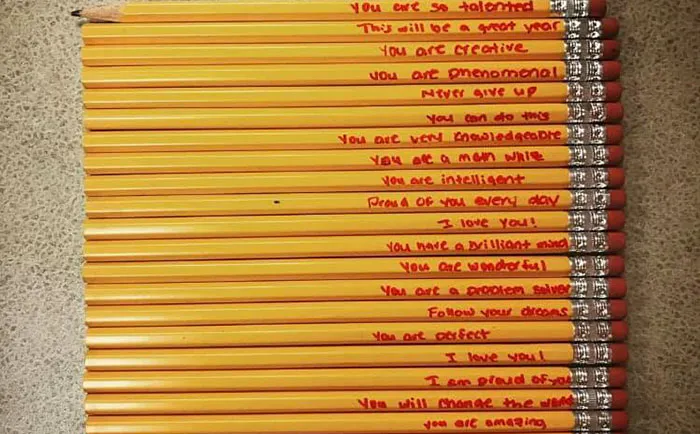 You are so talented
This will be a great year
You are creative
you are phenomenal
Never give up
You can do this
You are very knowledgeable
You are a math whiz
You are intelligent
Proud of you every day
I love you!
You have a brilliant mind
You are wonderful
You are a problem solver
Follow your dreams
You are perfect
I love you!
I am proud of you
You will change the world
you are amazing